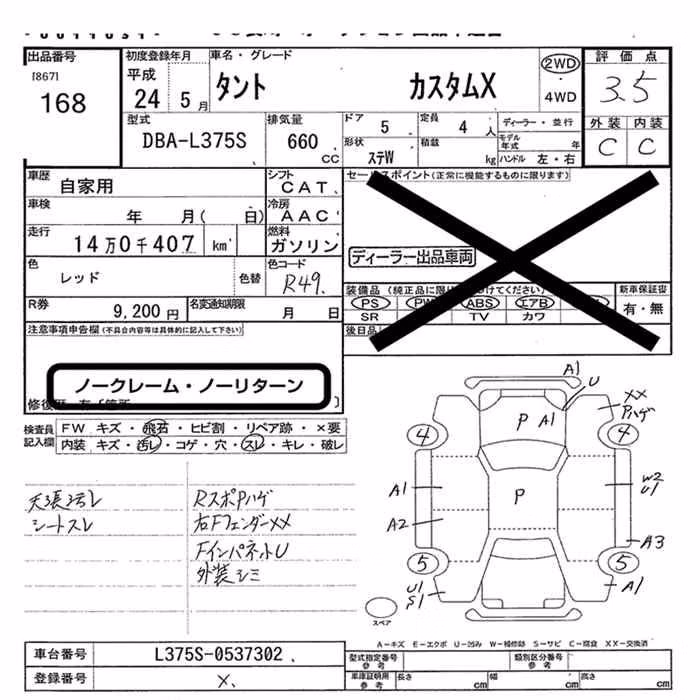 出品番号
[867]
168
初度登録年月
平成
24 5 月
車名・グレード
タント カスタムX
2WD
・
4WD
評価点
3.5
外装 内装
C C
型式
DBA-L375S
排気量
660 CC
ドア
5
定員
4 人
ディーラー・並行
モデル年式 年
形状
ステW
積載
kg
ハンドル 左・右
車歴
自家用
シフト
CAT
車検
年 月( 日)
冷房
AAC
走行
14万0千407 km
燃料
ガソリン
色
レッド
色替
色コード
R49
R券
9,200 円
名変通知期限
月 日
セールスポイント(正常に機能するものに限ります)
ディーラー出品車両
PS ABS エアB
SR TV カワ
新車保証書
有・無
注意事項申告欄(不具合内容等は具体的に記入して下さい)
ノークレーム・ノーリターン
検査員記入欄
FW キズ・飛石・ヒビ割・リペア跡・×要
内装 キズ・汚レ・コゲ・穴・スレ・キレ・破レ
天張汚レ
シートスレ
RスポPハゲ
右FフェンダーXX
FインパネットU
外装シミ
A1
U
XX
Pハゲ
P A1
4 4
A1
P
W2
U1
A2
A3
5 5
U1
S1
A1
スペア
A-キズ E-エクボ U-凹み W-補修跡 S-サビ C-腐食 XX-交換済
車台番号
L375S-0537302
登録番号
X
型式指定番号
参考
類別区分番号
参考
車庫証明用
参考
長さ cm
幅 cm
高さ cm